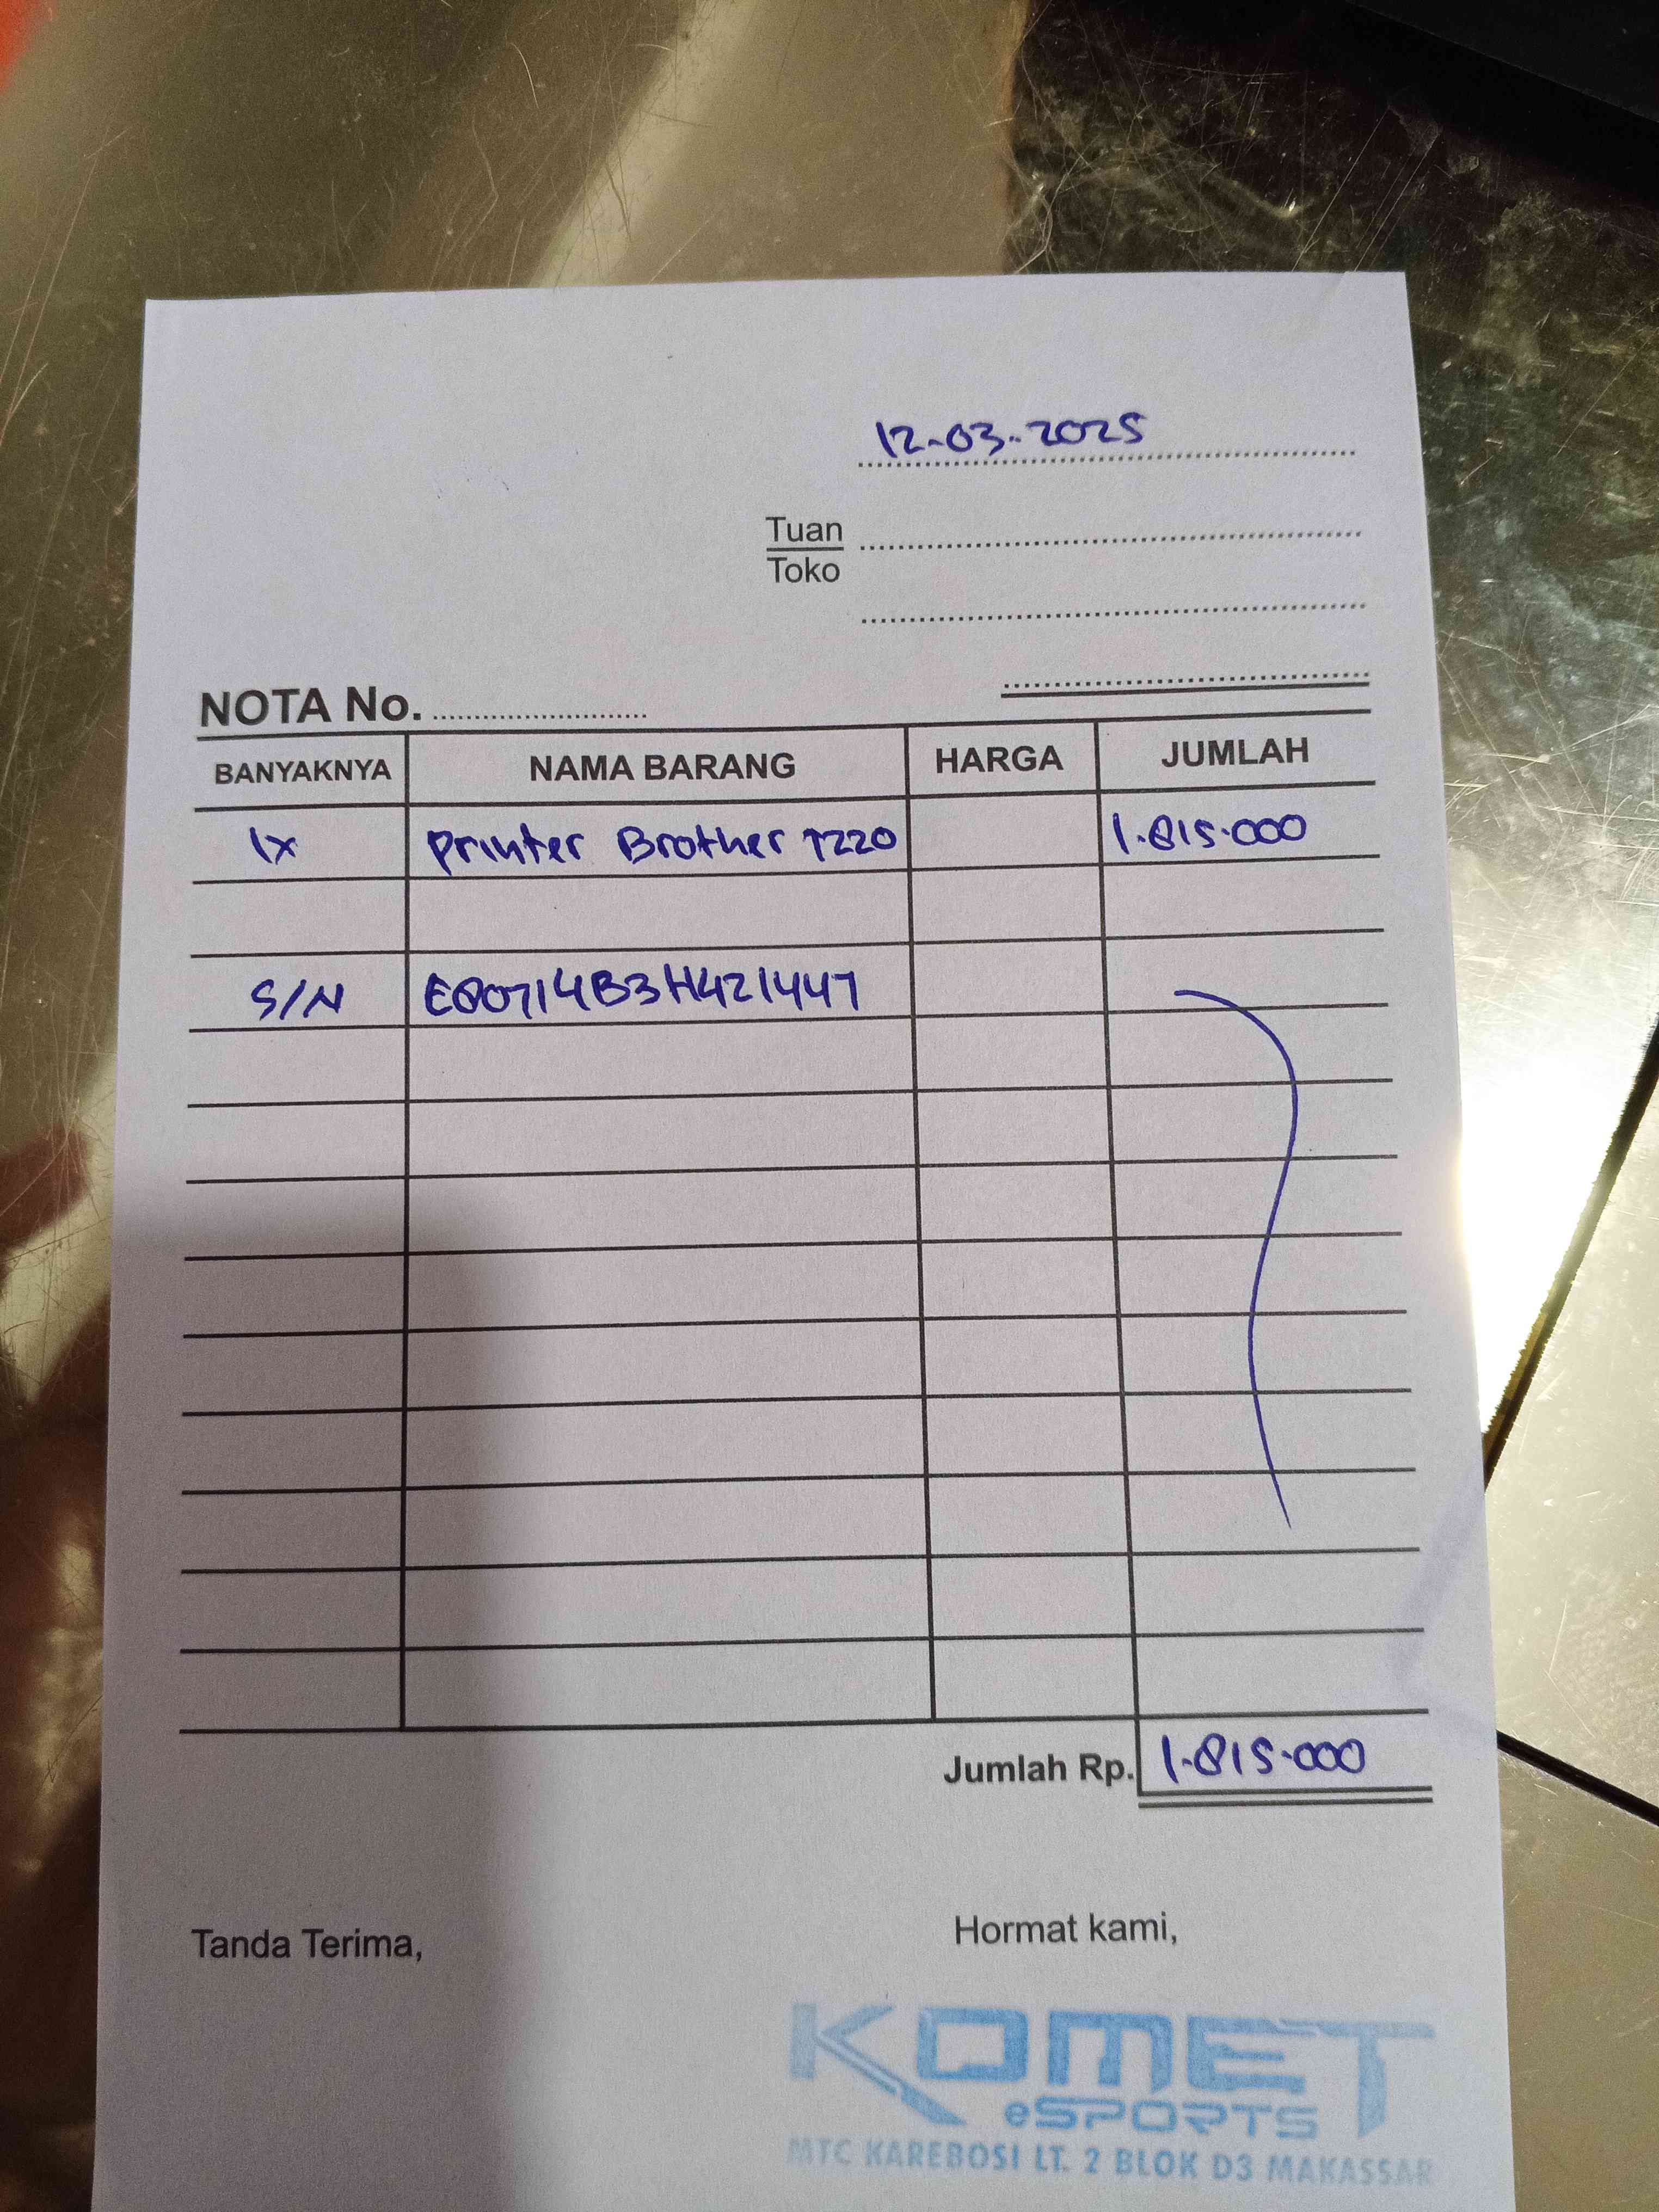 12-03-2025
Tuan
Toko
NOTA No.
BANYAKNYA NAMA BARANG HARGA JUMLAH
1x Printer Brother T220 1.815.000
S/N E80714B3H421447
Jumlah Rp. 1.815.000
Tanda Terima, Hormat kami,
KOMET
eSPORTS
MTC KAREBOSI LT. 2 BLOK D3 MAKASSAR